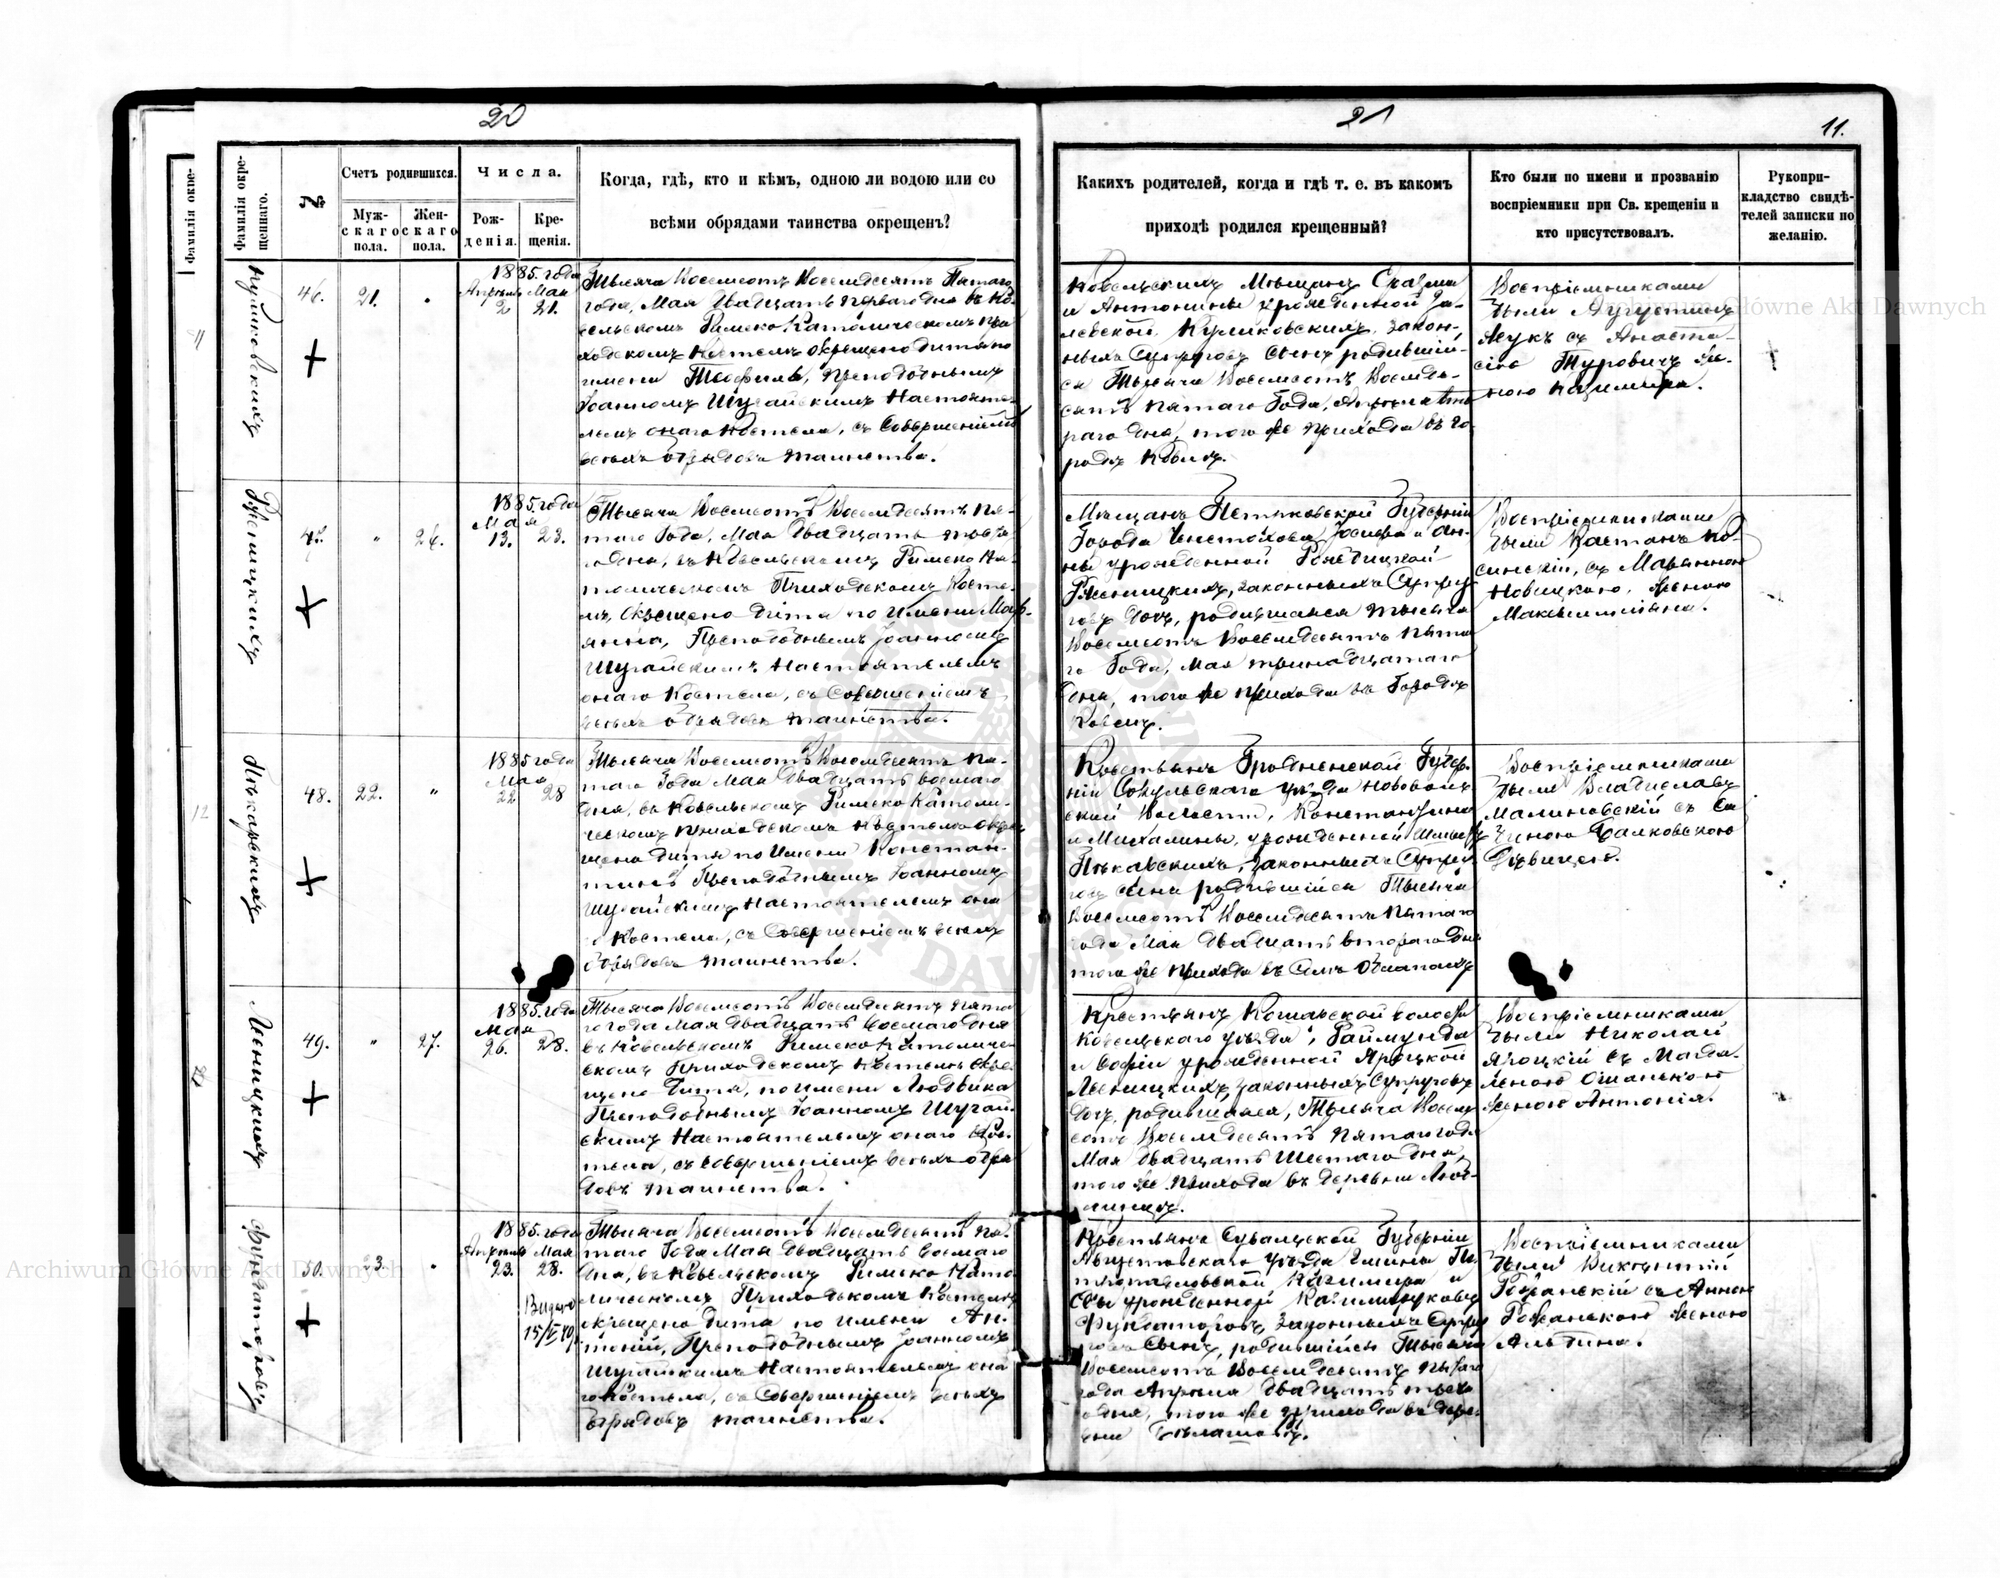 20
21
11.
Фамилія окре-
Фамилія окре-
щеннаго.
№
Счетъ родившихся.
Муж-
скаго
пола.
Жен-
скаго
пола.
Числа.
Рож-
денія.
Кре-
щенія.
Когда, гдѣ, кто и кѣмъ, одною ли водою или со
всѣми обрядами таинства окрещенъ?
Какихъ родителей, когда и гдѣ т. е. въ какомъ
приходѣ родился крещенный?
Кто были по имени и прозванію
воспріемники при Св. крещеніи и
кто присутствовалъ.
Рукопри-
кладство свидѣ-
телей записки по
желанію.
Куликовскихъ
46.
21.
"
1885. года
Апрѣля Мая
2 21.
Тысяча Восемсотъ Восемдесятъ Пятаго
года, Мая двадцать перваго дня въ Ко-
вельскомъ Римско Католическомъ При-
ходскомъ Костелѣ окрещено дитя по
имени Теофиль, Преподобнымъ
Іоанномъ Шугайскимъ Настояте-
лемъ онаго Костела, съ Совершеніемъ
всѣхъ обрядовъ таинства.
Ковельскихъ Мѣщанъ
и Антонины урожденной За-
левской Куликовскихъ, закон-
ныхъ Супруговъ Сынъ родившій-
ся Тысяча Восемсотъ Восемде-
сятъ пятаго Года, Апрѣля вто-
раго дня, того же прихода въ го-
родѣ Ковлѣ.
Воспріемниками
были Августинъ
съ Анаста-
сіею Туровичъ же-
ною Казимира.
47.
"
26.
1885. года
Мая
13. 23.
Тысяча Восемсотъ Восемдесятъ Пя-
таго Года, Мая двадцать третья-
го дня, въ Ковельскомъ Римско Ка-
толическомъ Приходскомъ Косте-
лѣ, окрещено дитя по Имени Мар-
янна, Преподобнымъ Іоанномъ
Шугайскимъ Настоятелемъ
онаго Костела, съ Совершеніемъ
всѣхъ обрядовъ таинства.
Мѣщанъ Петроковской Губерніи
Города Ченстохова, Іосифа и Ан-
ны урожденной
законныхъ Супру-
говъ дочь, родившаяся тысяча
Восемсотъ Восемдесятъ Пята-
го Года, Мая тринадцатаго
дня, того же прихода въ Городѣ
Ковлѣ.
Воспріемниками
были Каетанъ Ко-
синскій, съ Маріанною
Новицкою, женою
Максимиліяна.
Пѣкарскихъ
48.
22.
"
1885 года
Мая
22 28
Тысяча Восемсотъ Восемдесятъ Пя-
таго Года Мая двадцать восмаго
дня, въ Ковельскомъ Римско Католи-
ческомъ приходскомъ Костелѣ окре-
щено дитя по Имени Констан-
тинъ Преподобнымъ Іоанномъ
Шугайскимъ Настоятелемъ она-
го Костела, съ Совершеніемъ всѣхъ
обрядовъ таинства.
Крестьянъ Гродненской Губер-
ніи Сокульскаго уѣзда
Волости, Константина
и Михалины, урожденной
Пѣкарскихъ, законныхъ Супру-
говъ сынъ родившійся Тысяча
Восемсотъ Восемдесятъ Пятаго
года Мая двадцать втораго дня
того же прихода въ Селѣ
Воспріемниками
были Владиславъ
Малиновскій съ
Балковскою
Дѣвицею.
49.
"
27.
1885. года
Мая
26. 28.
Тысяча Восемсотъ Восемдесятъ Пята-
го года Мая двадцать восмаго дня
въ Ковельскомъ Римско Католиче-
скомъ Приходскомъ Костелѣ окре-
щено дитя, по имени Людвика
Преподобнымъ Іоанномъ Шугай-
скимъ Настоятелемъ онаго Кос-
тела, съ Совершеніемъ всѣхъ обря-
довъ таинства.
Крестьянъ волости
Ковельскаго уѣзда, Раймунда
и Софіи урожденной Яроцкой
законныхъ Супруговъ
дочь, родившаяся, Тысяча Восем-
сотъ Восемдесятъ Пятаго года
Мая двадцать Шестаго дня,
того же прихода въ деревни
Воспріемниками
были Николай
Яроцкій съ Магда-
леною
женою Антонія.
Фундаторовъ
50.
23.
"
1885. года
Апрѣля Мая
23. 28.
Тысяча Восемсотъ Восемдесятъ Пя-
таго Года Мая двадцать восмаго
дня, въ Ковельскомъ Римско Като-
лическомъ Приходскомъ Костелѣ
окрещено дитя по имени Ан-
тоній, Преподобнымъ Іоанномъ
Шугайскимъ Настоятелемъ она-
го Костела, съ Совершеніемъ всѣхъ
обрядовъ таинства.
Крестьянъ Сувалкской Губерніи
Августовскаго уѣзда Гмины Пе-
тропавловской Казимира и
Евы урожденной
Фундаторовъ, Законныхъ Супру-
говъ Сынъ, родившійся Тысяча
Восемсотъ Восемдесятъ Пятаго
года Апрѣля двадцать треть-
яго дня, того же прихода въ дере-
вни
Воспріемниками
были Викентій
Рожанскій съ Анною
Рожанскою женою
Archiwum Główne Akt Dawnych
Archiwum Główne Akt Dawnych